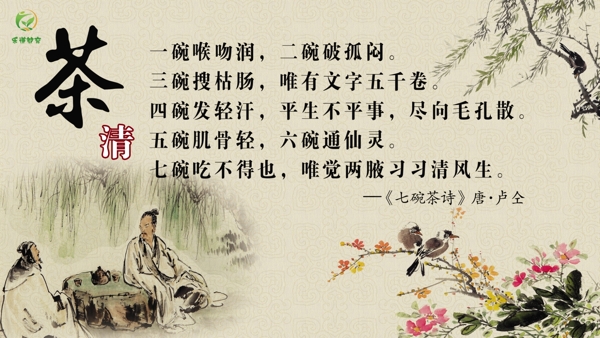 茶
清
一碗喉吻润，二碗破孤闷。
三碗搜枯肠，唯有文字五千卷。
四碗发轻汗，平生不平事，尽向毛孔散。
五碗肌骨轻，六碗通仙灵。
七碗吃不得也，唯觉两腋习习清风生。
—《七碗茶诗》唐·卢仝